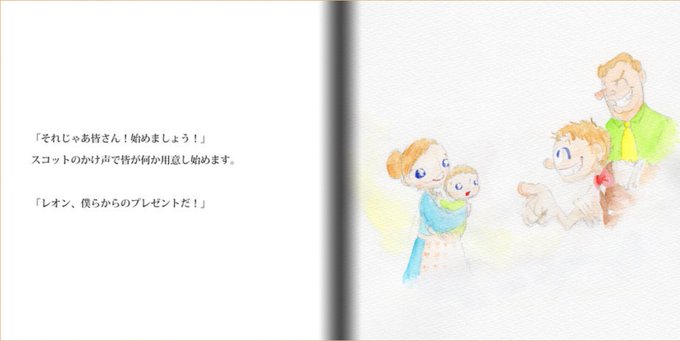 「それじゃあ皆さん！始めましょう！」
スコットのかけ声で皆が何か用意し始めます。
「レオン、僕らからのプレゼントだ！」